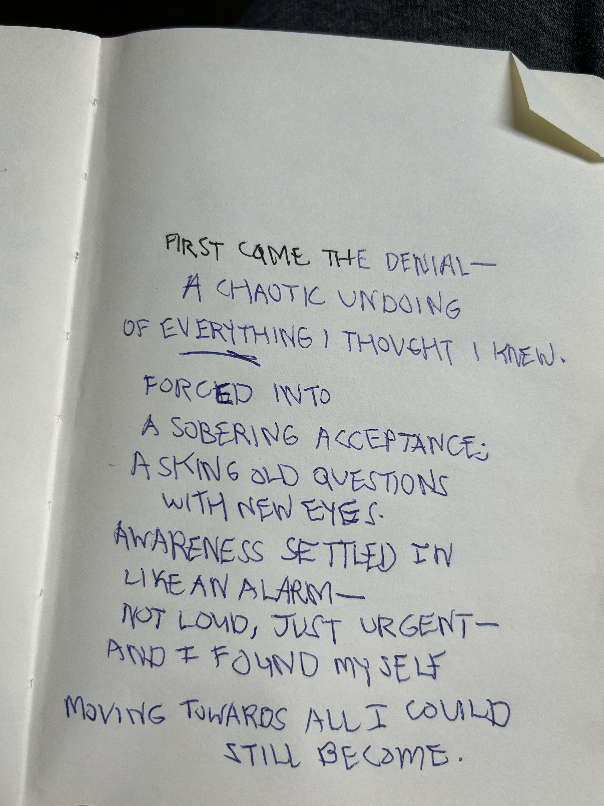 FIRST CAME THE DENIAL—
A CHAOTIC UNDOING
OF EVERYTHING I THOUGHT I KNEW.
FORCED INTO
A SOBERING ACCEPTANCE;
ASKING OLD QUESTIONS
WITH NEW EYES.
AWARENESS SETTLED IN
LIKE AN ALARM—
NOT LOUD, JUST URGENT—
AND I FOUND MYSELF
MOVING TOWARDS ALL I COULD
STILL BECOME.